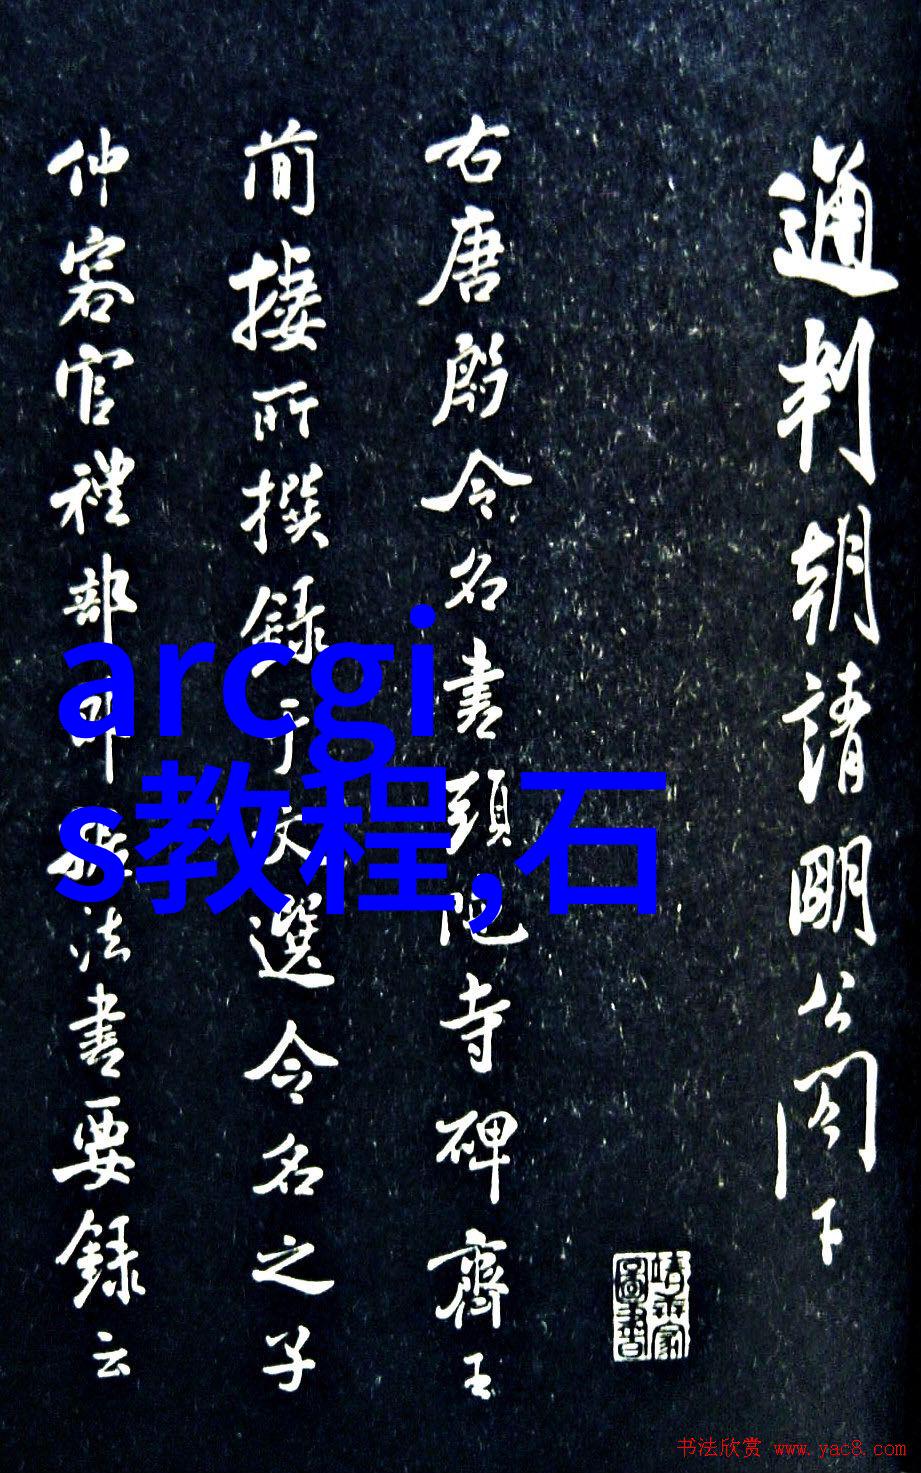 通判朝請明公閤下
右唐殷令名書頭陀寺碑齊王
簡棲所撰錄于文選令名之子
仲容官禮部郎 法書要錄云
arcgi
s教程,石
書法欣赏 www.yac8.com